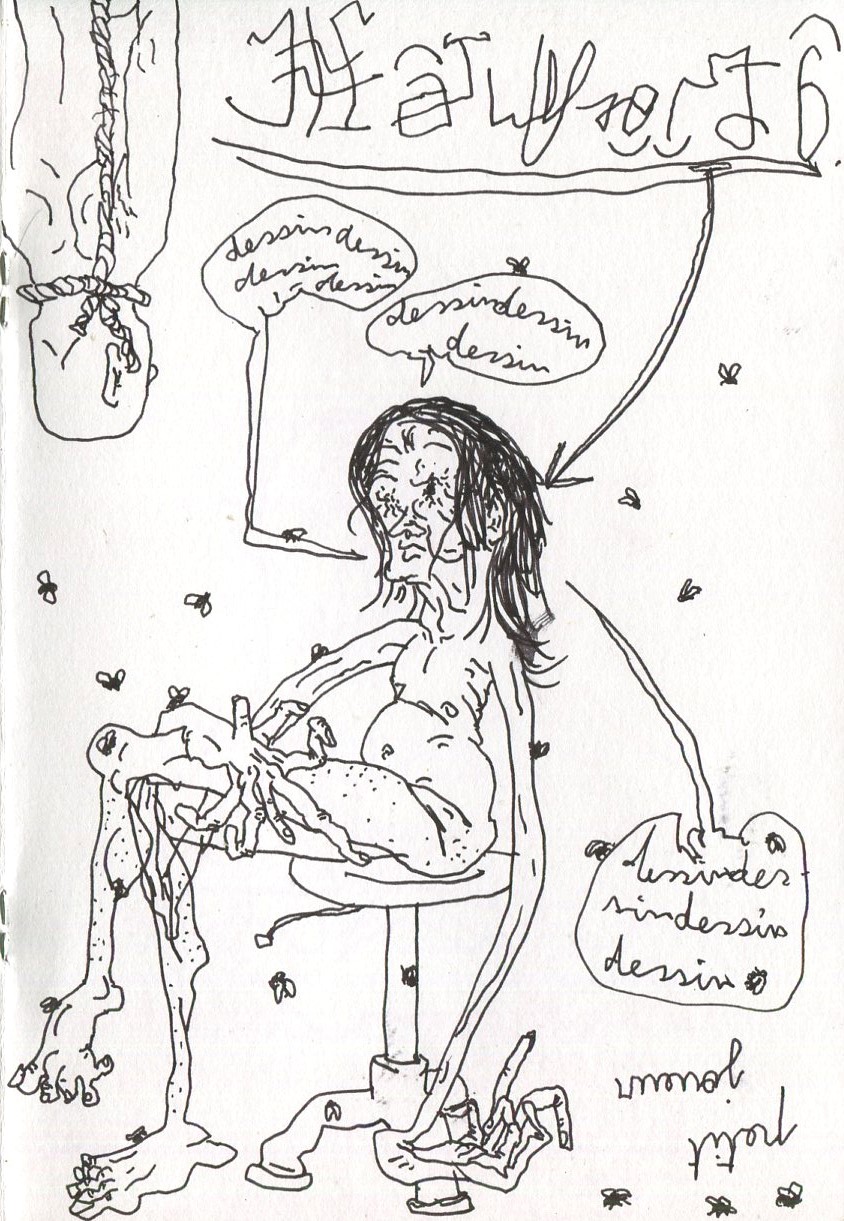 dessindessin
dessin dessin
dessindessin
dessin
dessindes
sindessin
dessin
petit
joueur